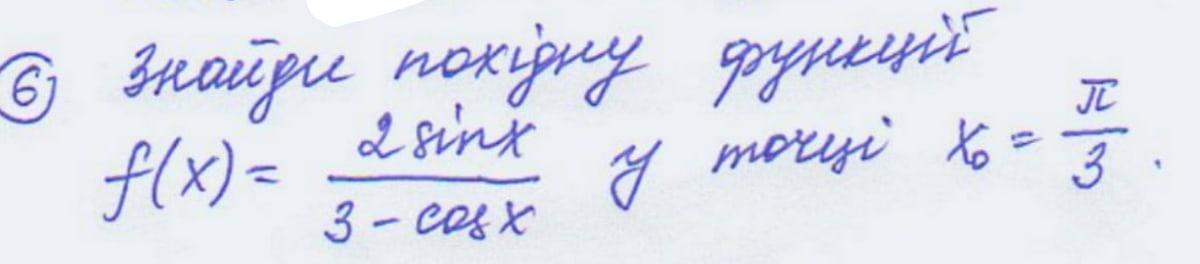 6 Знайди похідну функції
f(x) = 2 sinx / 3 - cosx у точці x₀ = π / 3 .